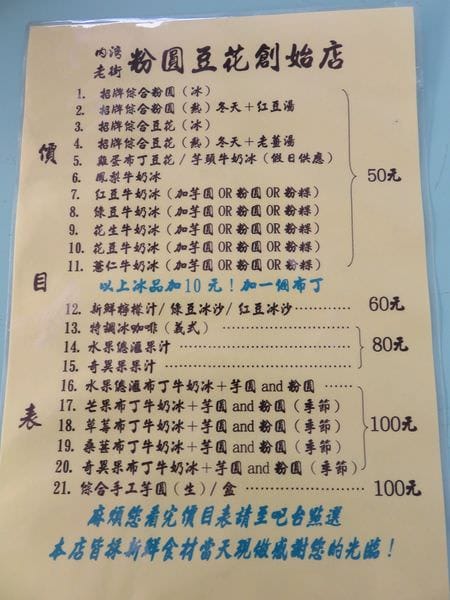 內灣老街 粉圓豆花創始店
價目表
1. 招牌綜合粉圓(冰)
2. 招牌綜合粉圓(熱)冬天+紅豆湯
3. 招牌綜合豆花(冰)
4. 招牌綜合豆花(熱)冬天+老薑湯
5. 雞蛋布丁豆花/芋頭牛奶冰(假日供應)
6. 鳳梨牛奶冰
7. 紅豆牛奶冰(加芋圓OR粉圓OR粉粿)
8. 綠豆牛奶冰(加芋圓OR粉圓OR粉粿)
9. 花生牛奶冰(加芋圓OR粉圓OR粉粿)
10. 花豆牛奶冰(加芋圓OR粉圓OR粉粿)
11. 薏仁牛奶冰(加芋圓OR粉圓OR粉粿)
50元
以上冰品加10元!加一個布丁
12. 新鮮檸檬汁/綠豆冰沙/紅豆冰沙 60元
13. 特調冰咖啡(義式)
14. 水果總滙果汁
15. 奇異果果汁
80元
16. 水果總滙布丁牛奶冰+芋圓and粉圓
17. 芒果布丁牛奶冰+芋圓and粉圓(季節)
18. 草莓布丁牛奶冰+芋圓and粉圓(季節)
19. 桑葚布丁牛奶冰+芋圓and粉圓(季節)
20. 奇異果布丁牛奶冰+芋圓and粉圓(季節)
100元
21. 綜合手工芋圓(生)/盒 100元
麻煩您看完價目表請至吧台點選
本店皆採新鮮食材當天現做感謝您的光臨!